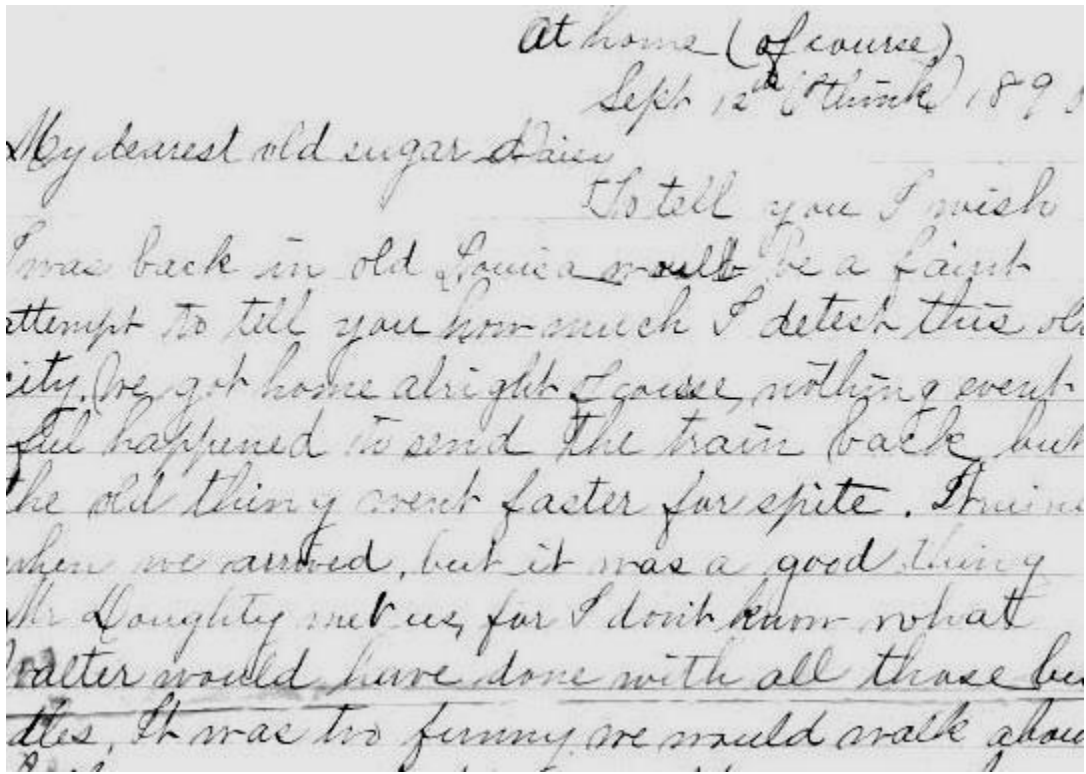 At home (of course)
Sept 12th (I think) 189
My dearest old sugar Daisy
To tell you I wish
I was back in old Louisa would be a faint
attempt to tell you how much I detest this old
city. We got home alright of course, nothing event
ful happened to send the train back but
the old thing went faster for spite. It
when we arrived, but it was a good thing
Mr Doughty met us, for I don't know what
Walter would have done with all those bun
dles. It was too funny we would walk about